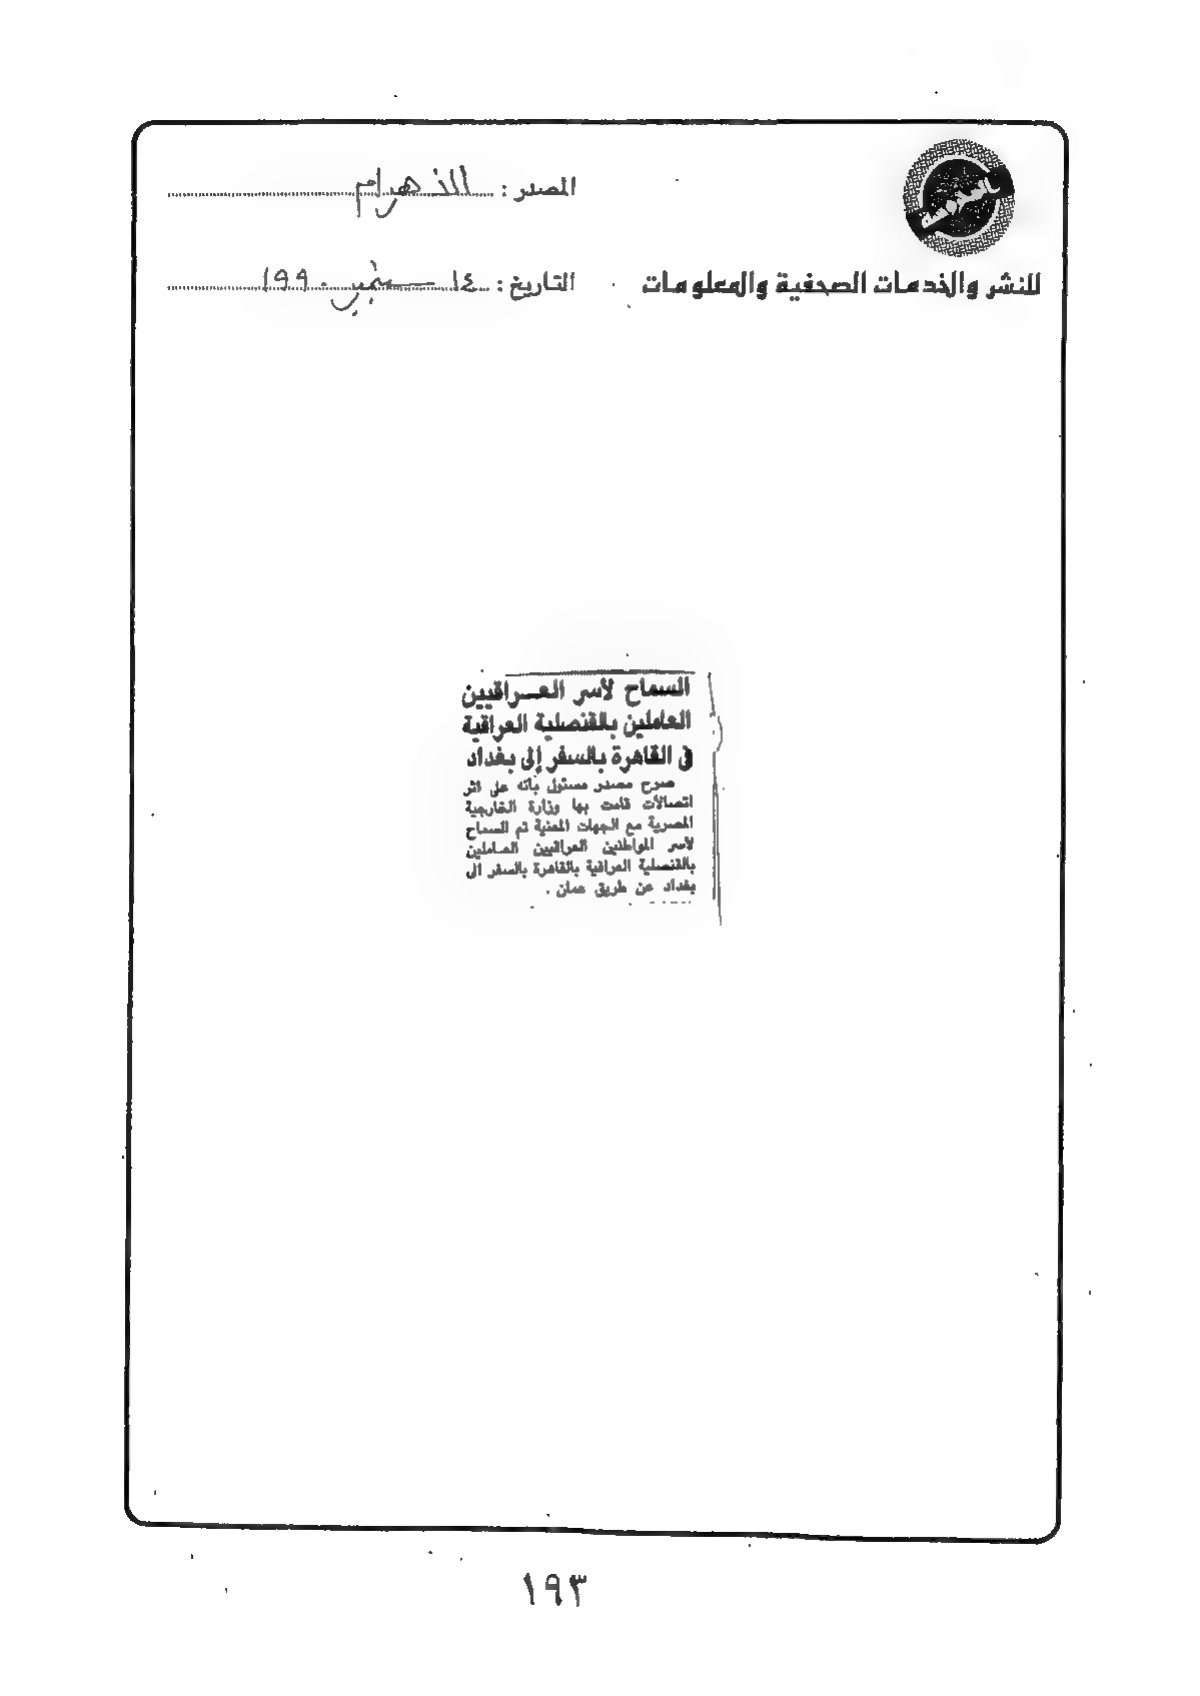 المصدر : الأهرام
للنشر والخدمات الصحفية والمعلومات
التاريخ : ١٤ سبتمبر ١٩٩٠
السماح لأسر العراقيين
العاملين بالقنصلية العراقية
فى القاهرة بالسفر إلى بغداد
صرح مصدر مسئول بأنه على اثر
اتصالات قامت بها وزارة الخارجية
المصرية مع الجهات المعنية تم السماح
لأسر المواطنين العراقيين العاملين
بالقنصلية العراقية بالقاهرة بالسفر الى
بغداد عن طريق عمان .
١٩٣